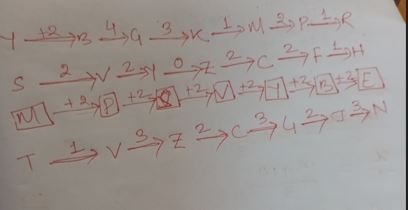 Y +2→ B 4→ G 3→ K 1→ M 2→ P 1→ R
S 2→ V 2→ Y 0→ Z 2→ C 2→ F 1→ H
M +2→ P +2→ S +2→ V +2→ Y +2→ B +2→ E
T 1→ V 3→ Z 2→ C 3→ G 2→ J 3→ N